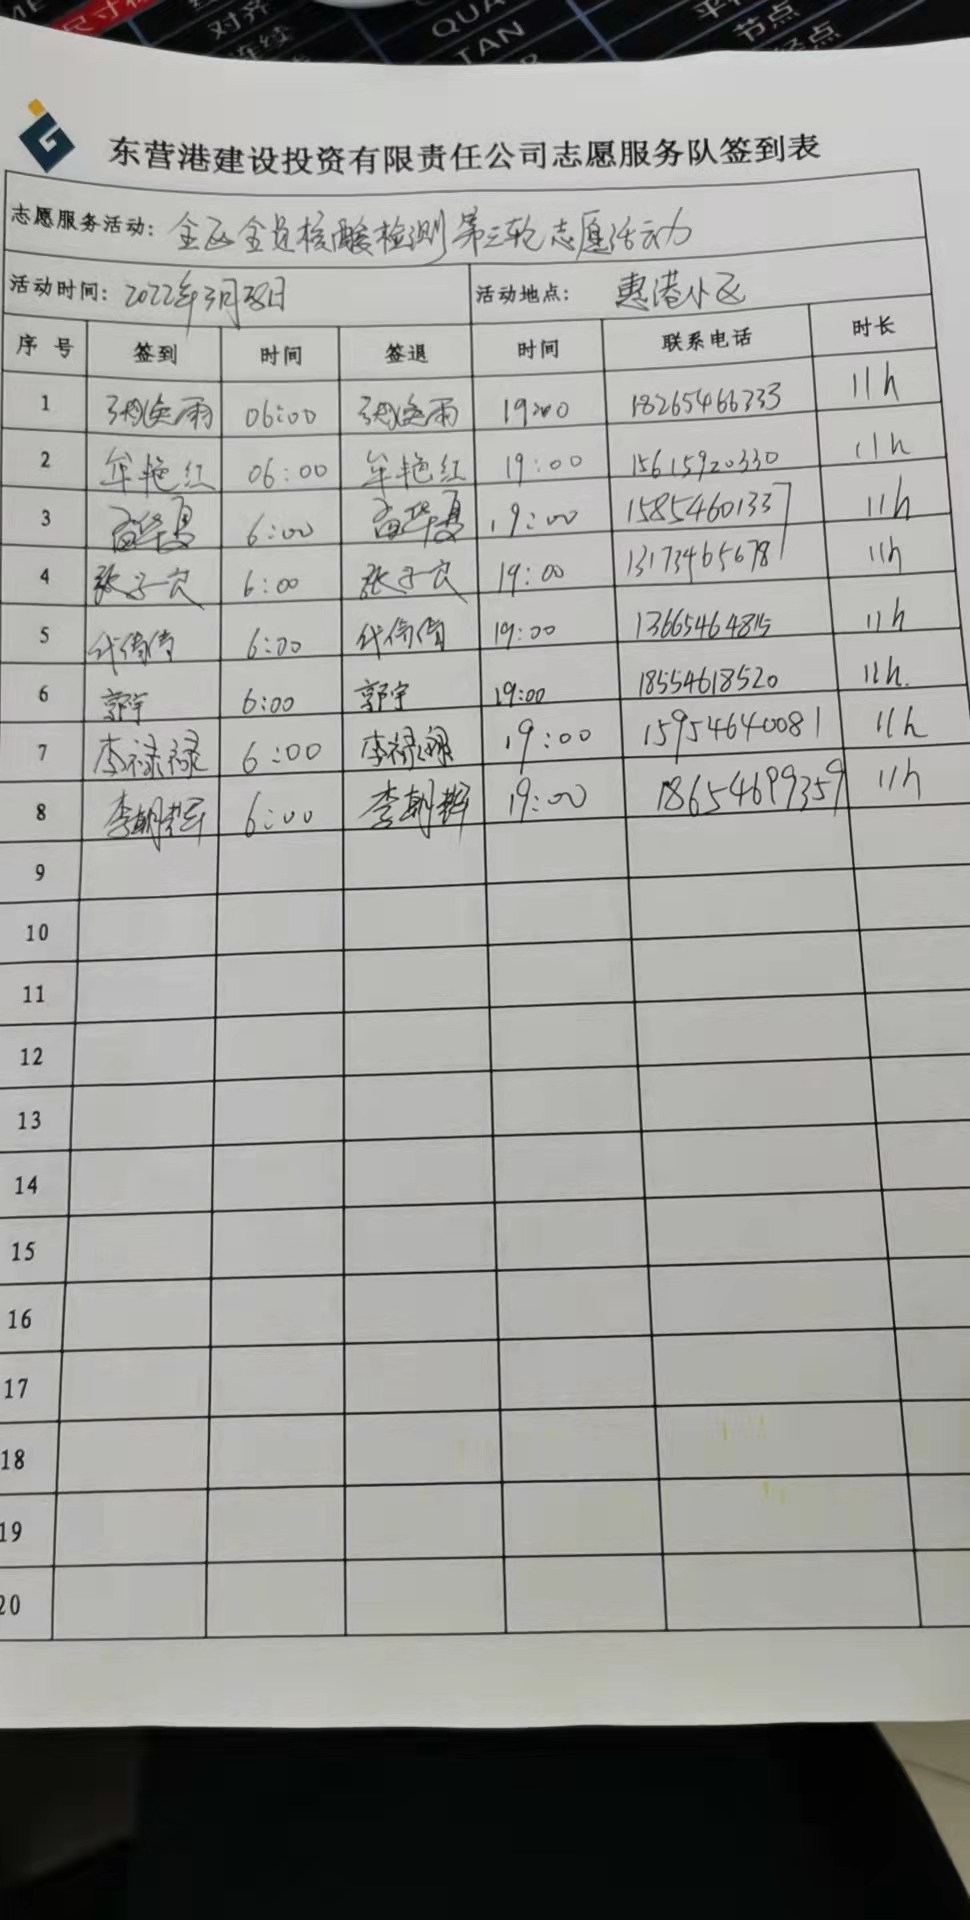 对齐
连续
QUA
TAN
节点
东营港建设投资有限责任公司志愿服务队签到表
志愿服务活动：全区全员核酸检测第三轮志愿活动
活动时间：2022年3月28日 活动地点：惠港小区
序号 签到 时间 签退 时间 联系电话 时长
1 06:00 19:00 18265466333 11h
2 牟艳红 06:00 牟艳红 19:00 15615920330 11h
3 6:00 19:00 15854601337 11h
4 张子 6:00 张子 19:00 13173465678 11h
5 代倩倩 6:00 代倩倩 19:00 13665464815 11h
6 郭宇 6:00 郭宇 19:00 18554618520 11h.
7 李禄禄 6:00 李禄禄 19:00 15954640081 11h
8 李朝辉 6:00 李朝辉 19:00 18654699359 11h
9
10
11
12
13
14
15
16
17
18
19
20